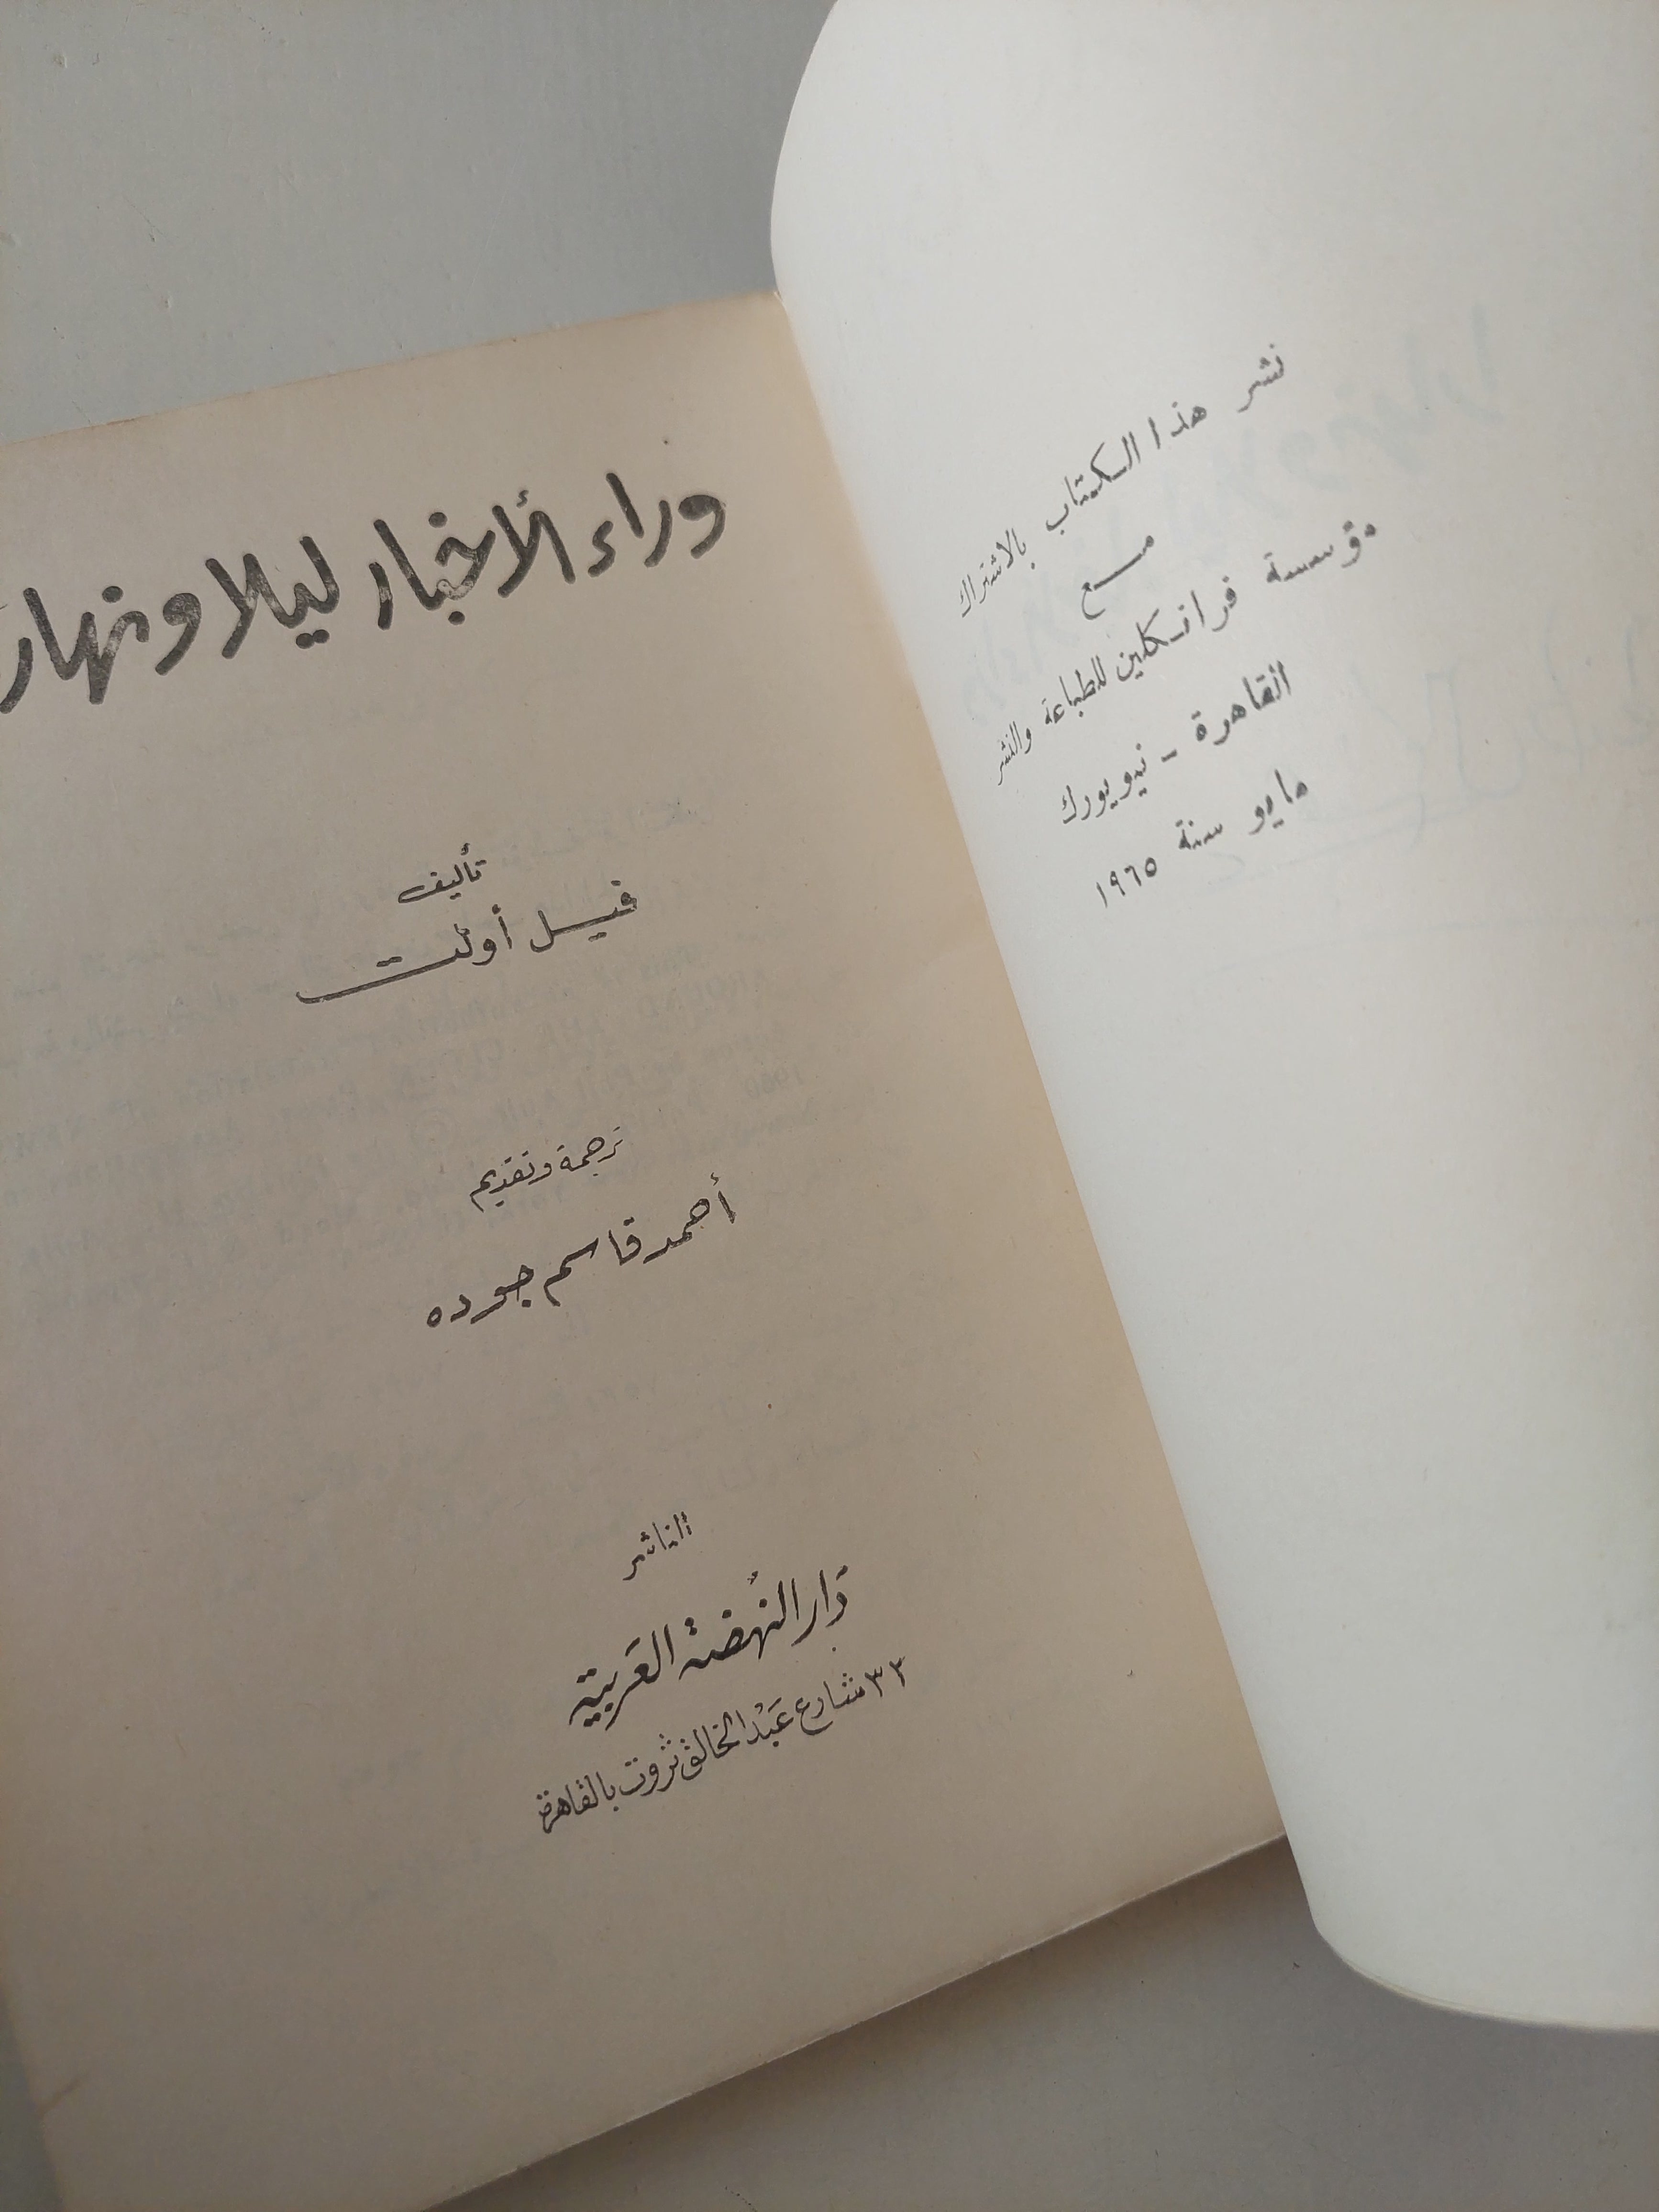 نشر هذا الكتاب بالاشتراك
مع
مؤسسة فرانكلين للطباعة والنشر
القاهرة - نيويورك
مايو سنة ١٩٦٥
وراء الأخبار ليلا ونهار
تأليف
فيسل أولت
ترجمة وتقديم
أحمد قاسم جوده
الناشر
دار النهضة العربية
٣٣ شارع عبد الخالق ثروت بالقاهرة